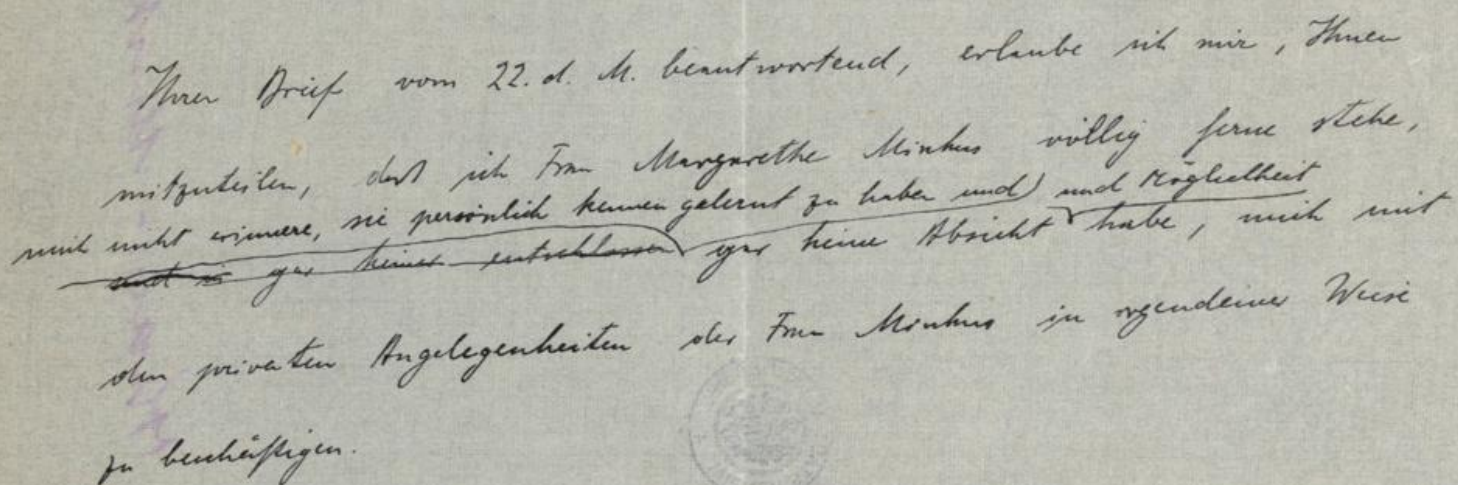 Ihren Brief vom 22. d. M. beantwortend, erlaube ich mir, Ihnen
mitzuteilen, dass ich Frau Margarethe Minkus völlig ferne stehe,
mich nicht erinnere, sie persönlich kennen gelernt zu haben und und Möglichkeit
und gar keiner entschlossen gar keine Absicht habe, mich mit
den privaten Angelegenheiten der Frau Minkus in irgendeiner Weise
zu beschäftigen.